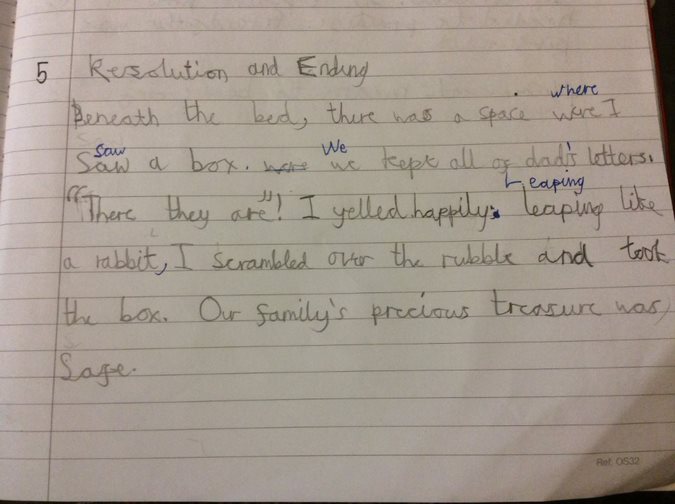 5 Resolution and Ending
where
Beneath the bed, there was a space were I
Saw We
Saw a box. were we kept all of dad's letters.
Leaping
"There they are"! I yelled happily. leaping like
a rabbit, I scrambled over the rubble and took
the box. Our family's precious treasure was,
Safe.
Ref: OS32